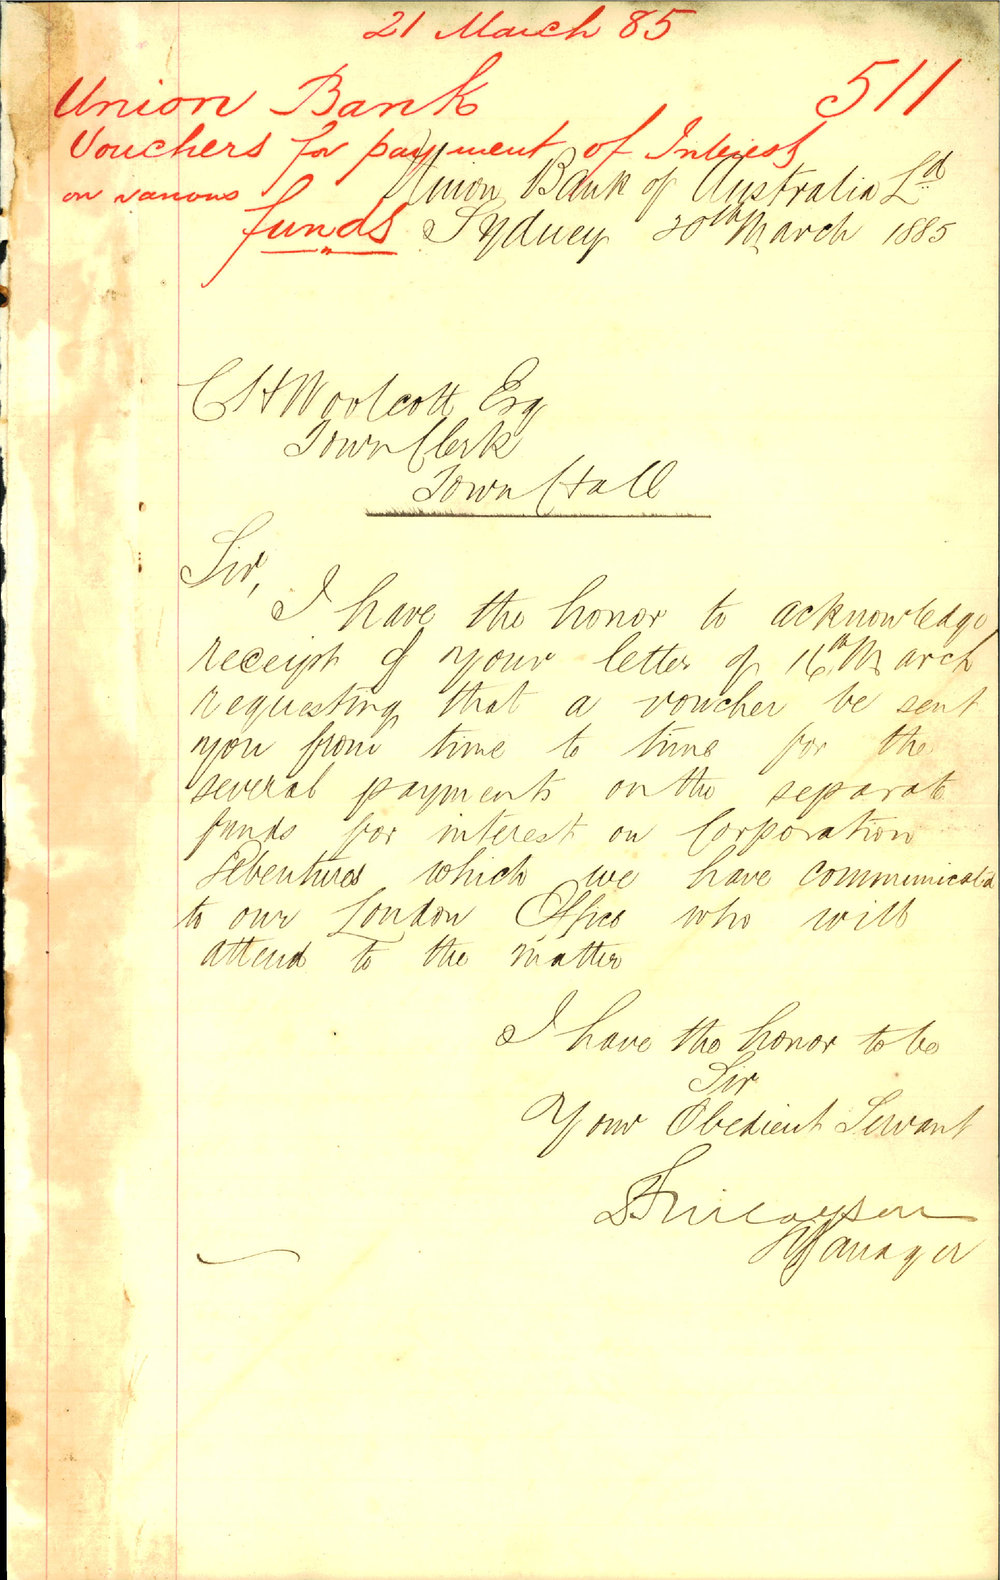 21 March 85
511
Union Bank
Vouchers for payment of Interest
on various
funds
Union Bank of Australia Ld
Sydney 20th March 1885
C H Woolcott Esq
Town Clerk
Town Hall
Sir,
I have the honor to acknowledge
receipt of your letter of 16th March
requesting that a voucher be sent
you from time to time for the
several payments on the separate
funds for interest on Corporation
Debentures which we have communicated
to our London Office who will
attend to the matter
I have the honor to be
Sir
Your Obedient Servant
Manager